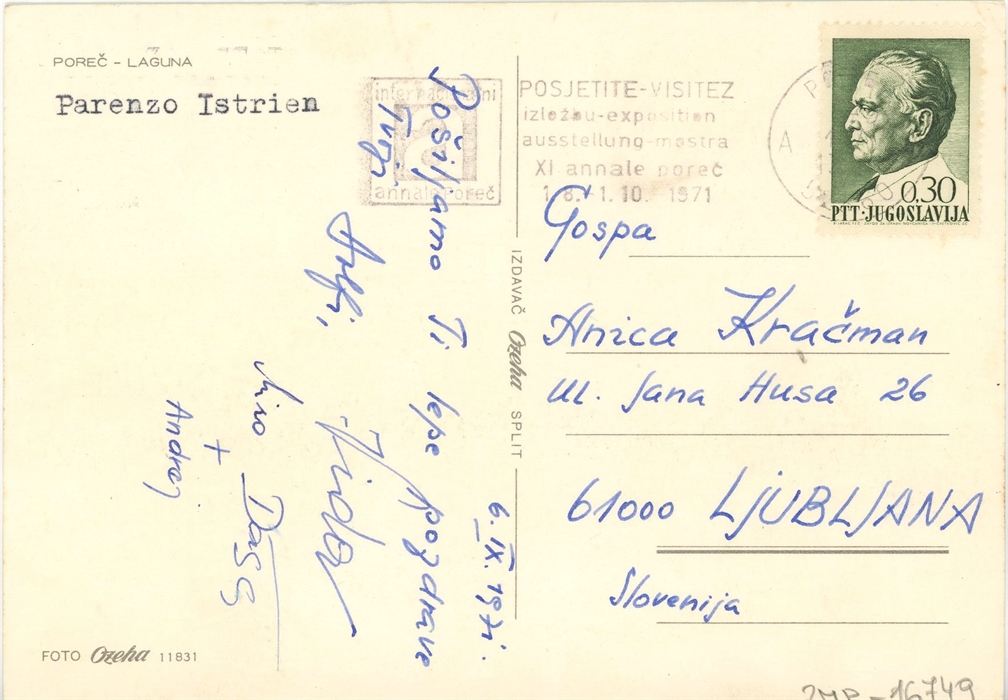 POREČ - LAGUNA
Parenzo Istrien
internacionalni
annale Poreč
POSJETITE-VISITEZ
izložbu-exposition
ausstellung-mostra
XI annale poreč
1.8.-1.10.-1971
A
0,30
PTT·JUGOSLAVIJA
6. IX. 1971.
Pošiljamo Ti lepe pozdrave
Tvoji
Miro
+
Andrej
Gospa
Anica Kračman
Ul. Jana Husa 26
61000 LJUBLJANA
Slovenija
IZDAVAČ Ozeha SPLIT
FOTO Ozeha 11831
16749